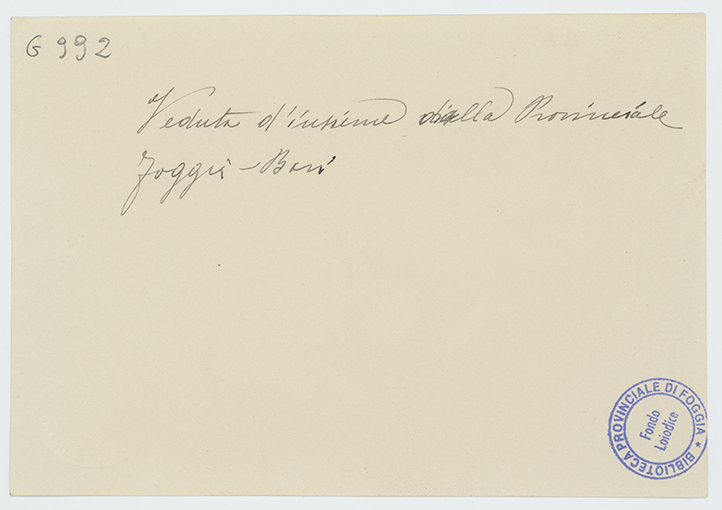 G 992
Veduta d'insieme dalla Provinciale
Foggia - Bari
BIBLIOTECA PROVINCIALE DI FOGGIA *
Fondo
Loiodice